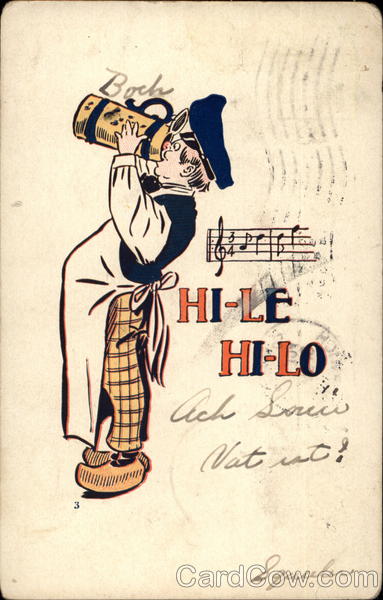 Boch
3
4
HI-LE
HI-LO
Ach Louie
Vat iat?
3
CardCow.com